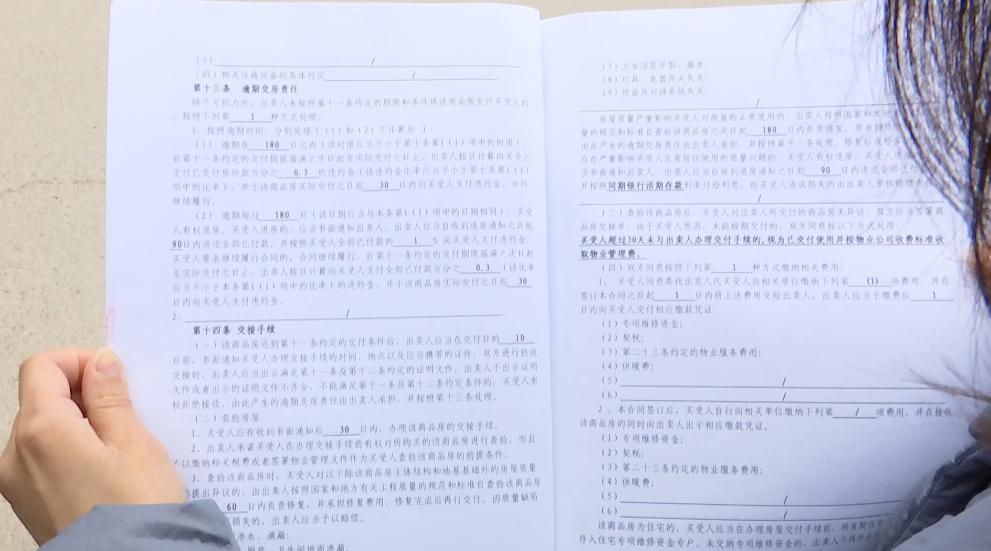 (3) /
(四)相关设施设备的具体约定 /
第十三条 逾期交房责任
除不可抗力外,出卖人未按照第十一条约定的期限和条件将该商品房交付买受人的
,按照下列第 1 种方式处理:
1、按照逾期时间,分别处理((1)和(2)不作累加):
(1)逾期在 180 日之内(该时限应当不小于第十条第1(1)项中的时限),
自第十一条约定的交付期限届满之次日起至实际交付之日止,出卖人按日计算向买受人
支付已交付房价款万分之 0.3 的违约金(该违约金比率应当不小于第十条第1(1)
项中的比率),并于该商品房实际交付之日起 30 日内向买受人支付违约金,合同
继续履行。
(2)逾期超过 180 日(该日期应当与本条第1(1)项中的日期相同),买受
人有权退房。买受人退房的,应当书面通知出卖人,出卖人应当自收到退房通知之日起
90日内退还全部已付款,并按照买受人全部已付款的 1 %向买受人支付违约金。
买受人要求继续履行合同的,合同继续履行,自第十一条约定的交付期限届满之次日起
至实际交付之日止,出卖人按日计算向买受人支付全部已付款万分之 0.3 (该比率
应当不小于本条第1(1)项中的比率)的违约金,并于该商品房实际交付之日起 30
日内向买受人支付违约金。
2、 /
第十四条 交接手续
(一)该商品房达到第十一条约定的交付条件后,出卖人应当在交付日的 10
日前,书面通知买受人办理交接手续的时间、地点以及应当携带的证件。双方进行验收
交接时,出卖人应当出示满足第十一条及第十二条约定的证明文件。出卖人不出示证明
文件或者出示的证明文件不齐全,不能满足第十一条及第十二条约定条件的,买受人有
权拒绝接收,由此产生的逾期交房责任由出卖人承担,并按照第十三条处理。
(二)查验房屋
1、买受人应在收到书面通知后 30 日内,办理该商品房的交接手续。
2、出卖人承诺买受人在办理交接手续前有权对所购买的该商品房进行查验,而且
不以缴纳相关税费或者签署物业管理文件作为买受人查验该商品房的前提条件。
3、查验该商品房时,买受人对以下除该商品房主体结构和地基基础外的房屋质量
提出异议的,由出卖人按照国家和地方有关工程质量的规范和标准自查验该商品房
60 日内负责修复,并承担修复费用,修复完成后再行交付。因质量缺陷
损失的,出卖人应当予以赔偿。
渗水、滴漏;
卫生间地面渗漏;
(7)卫生洁具开裂、漏水;
(8)灯具、电器开关失灵;
(9)对讲系统失灵;
/
房屋质量严重影响买受人对房屋的正常使用的,出卖人按照国家和本地
量的规范和标准自查验该商品房之日起 180 日内负责修复,并承担修
由此产生的逾期交房责任由出卖人承担,并按照第十三条处理。修复后或经
存在严重影响买受人正常居住使用的质量问题的,买受人有权退房。买受人退房
当书面通知出卖人,出卖人应当自收到退房通知之日起 90 日内退还全部已付
并按照同期银行活期存款利率付给利息,给买受人造成损失的由出卖人承担赔偿责任
/
(三)查验该商品房后,买受人对出卖人所交付的商品房无异议,双方应当签署商
品房交接单。由于买受人原因,未能按期交付的,双方同意按以下方式处理:
买受人超过30天未与出卖人办理交付手续的,视为已交付使用并按物业公司收费标准收
取物业管理费。
(四)双方同意按照下列第 1 种方式缴纳相关费用:
1、买受人同意委托出卖人代买受人向相关单位缴纳下列第 (1) 项费用,并在
签订本合同之日起 1 日内将上述费用交给出卖人。出卖人应当于缴费后 1
日内向买受人交付相应缴款凭证。
(1)专项维修资金;
(2)契税;
(3)第二十三条约定的物业服务费用;
(4)供暖费;
(5) /
(6) /
2、本合同签订后,买受人自行向相关单位缴纳下列第 / 项费用,并在接收
该商品房的同时向出卖人出示相应缴款凭证。
(1)专项维修资金;
(2)契税;
(3)第二十三条约定的物业服务费用;
(4)供暖费;
(5) /
(6) /
该商品房为住宅的,买受人应当在办理房屋交付手续前,将首期住宅
存入住宅专项维修资金专户。未交纳专项维修资金的,出卖人不得